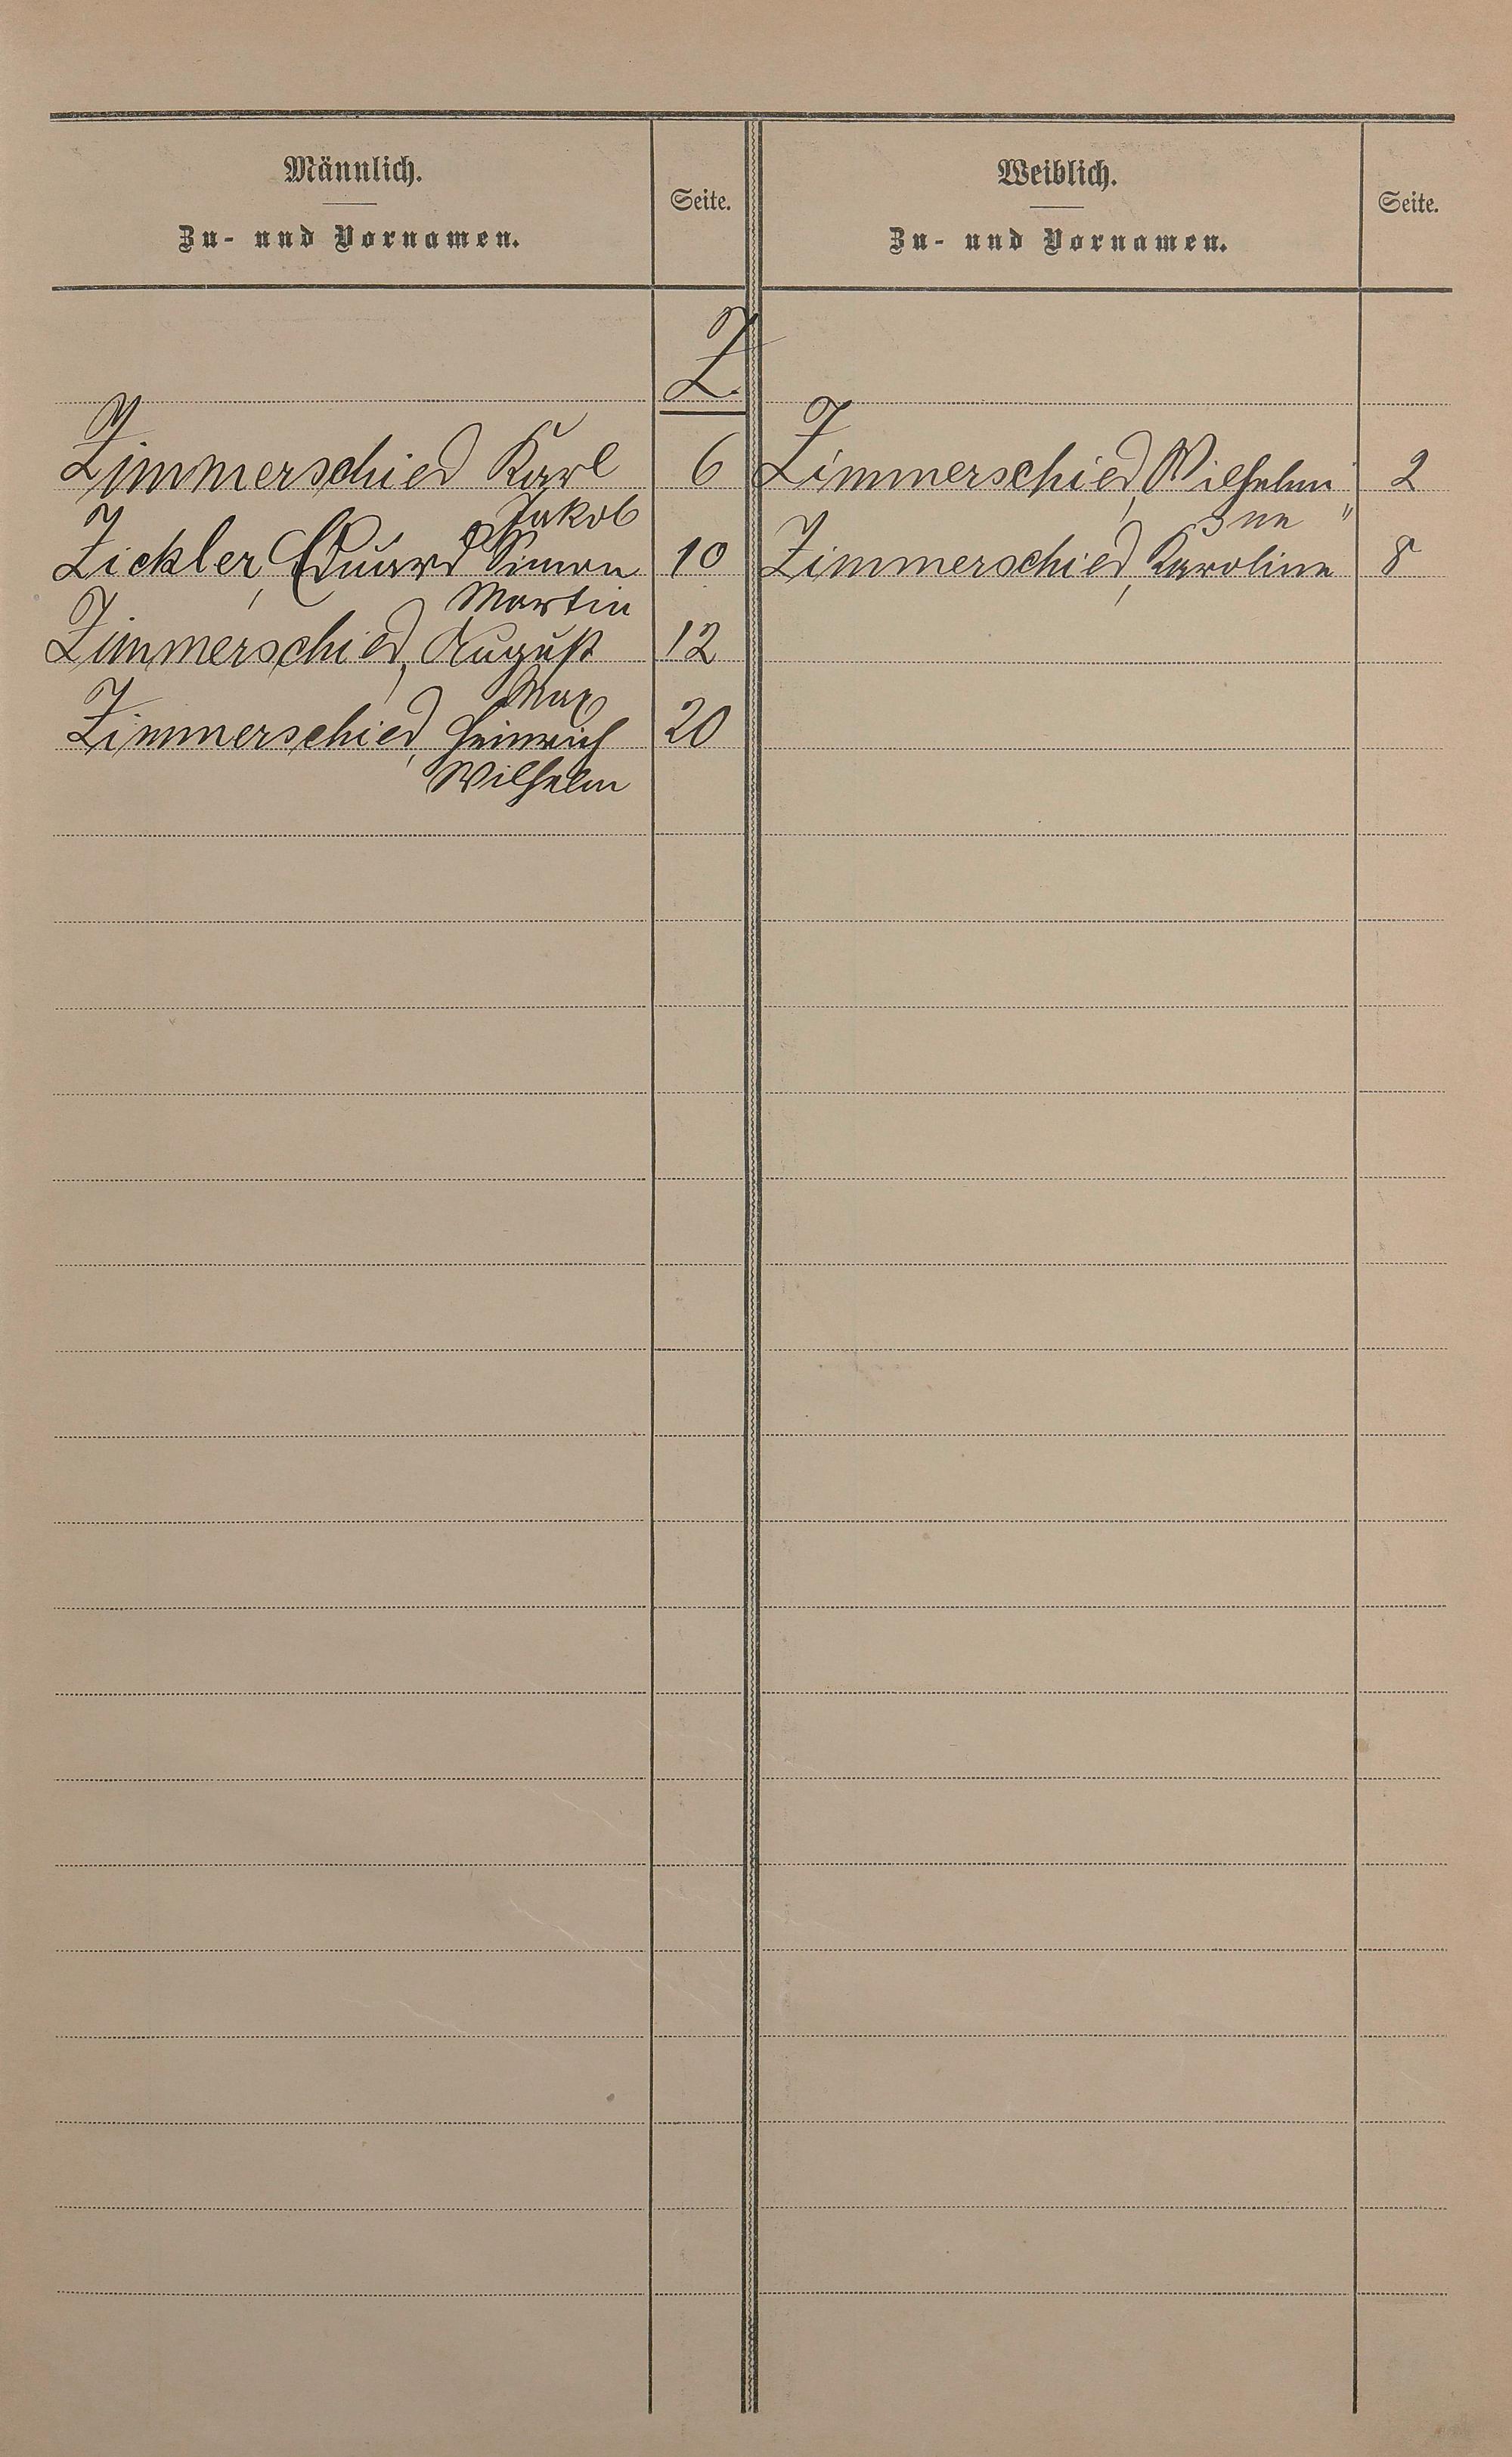 Männlich.
Zu- und Vornamen.
Seite.
Weiblich.
Zu- und Vornamen.
Seite.
Z
Zimmerschied Karl 6
Jakob
Zickler, Eduard Simon 10
Martin
Zimmerschied, August 12
Max
Zimmerschied, Heinrich 20
Wilhelm
Zimmerschied, Wilhelmi 2
ne "
Zimmerschied, Karoline 8